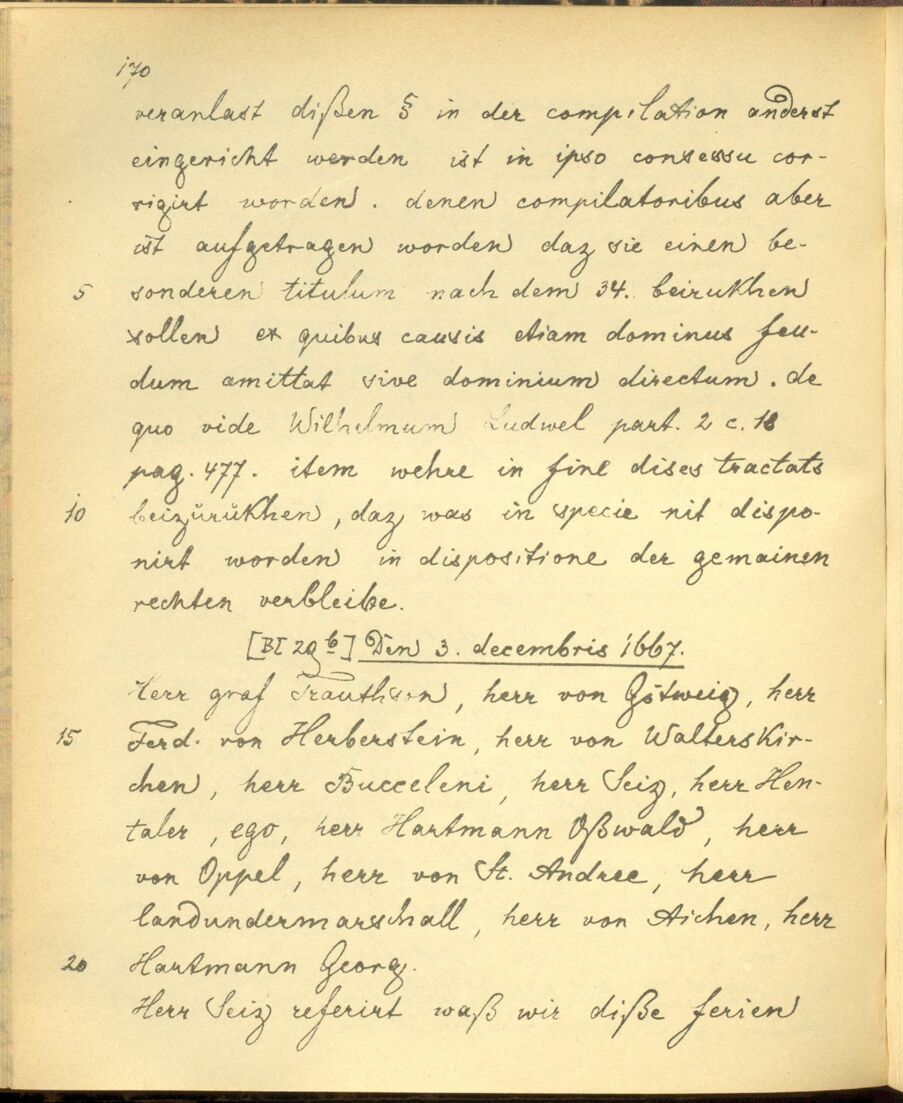 170
veranlast dißen § in der compilation anderst
eingericht werden ist in ipso consessu cor-
rigirt worden. denen compilatoribus aber
ist aufgetragen worden daz sie einen be-
5 sonderen titulum nach dem 34. beirukhen
sollen ex quibus causis etiam dominus feu-
dum amittat sive dominium directum. de
quo vide Wilhelmum Ludwel part. 2 c. 18
pag. 477. item wehre in fine dises tractats
10 beizurukhen, daz was in specie nit dispo-
nirt worden in dispositione der gemainen
rechten verbleibe.
[BI 29 b] Den 3. decembris 1667.
Herr graf Trauthson, herr von Götweig, herr
15 Ferd. von Herberstein, herr von Walterskir-
chen, herr Bucceleni, herr Seiz, herr Hen-
taler, ego, herr Hartmann Oßwald, herr
von Oppel, herr von St. Andree, herr
landundermarschall, herr von Aichen, herr
20 Hartmann Georg.
Herr Seiz referirt waß wir diße ferien